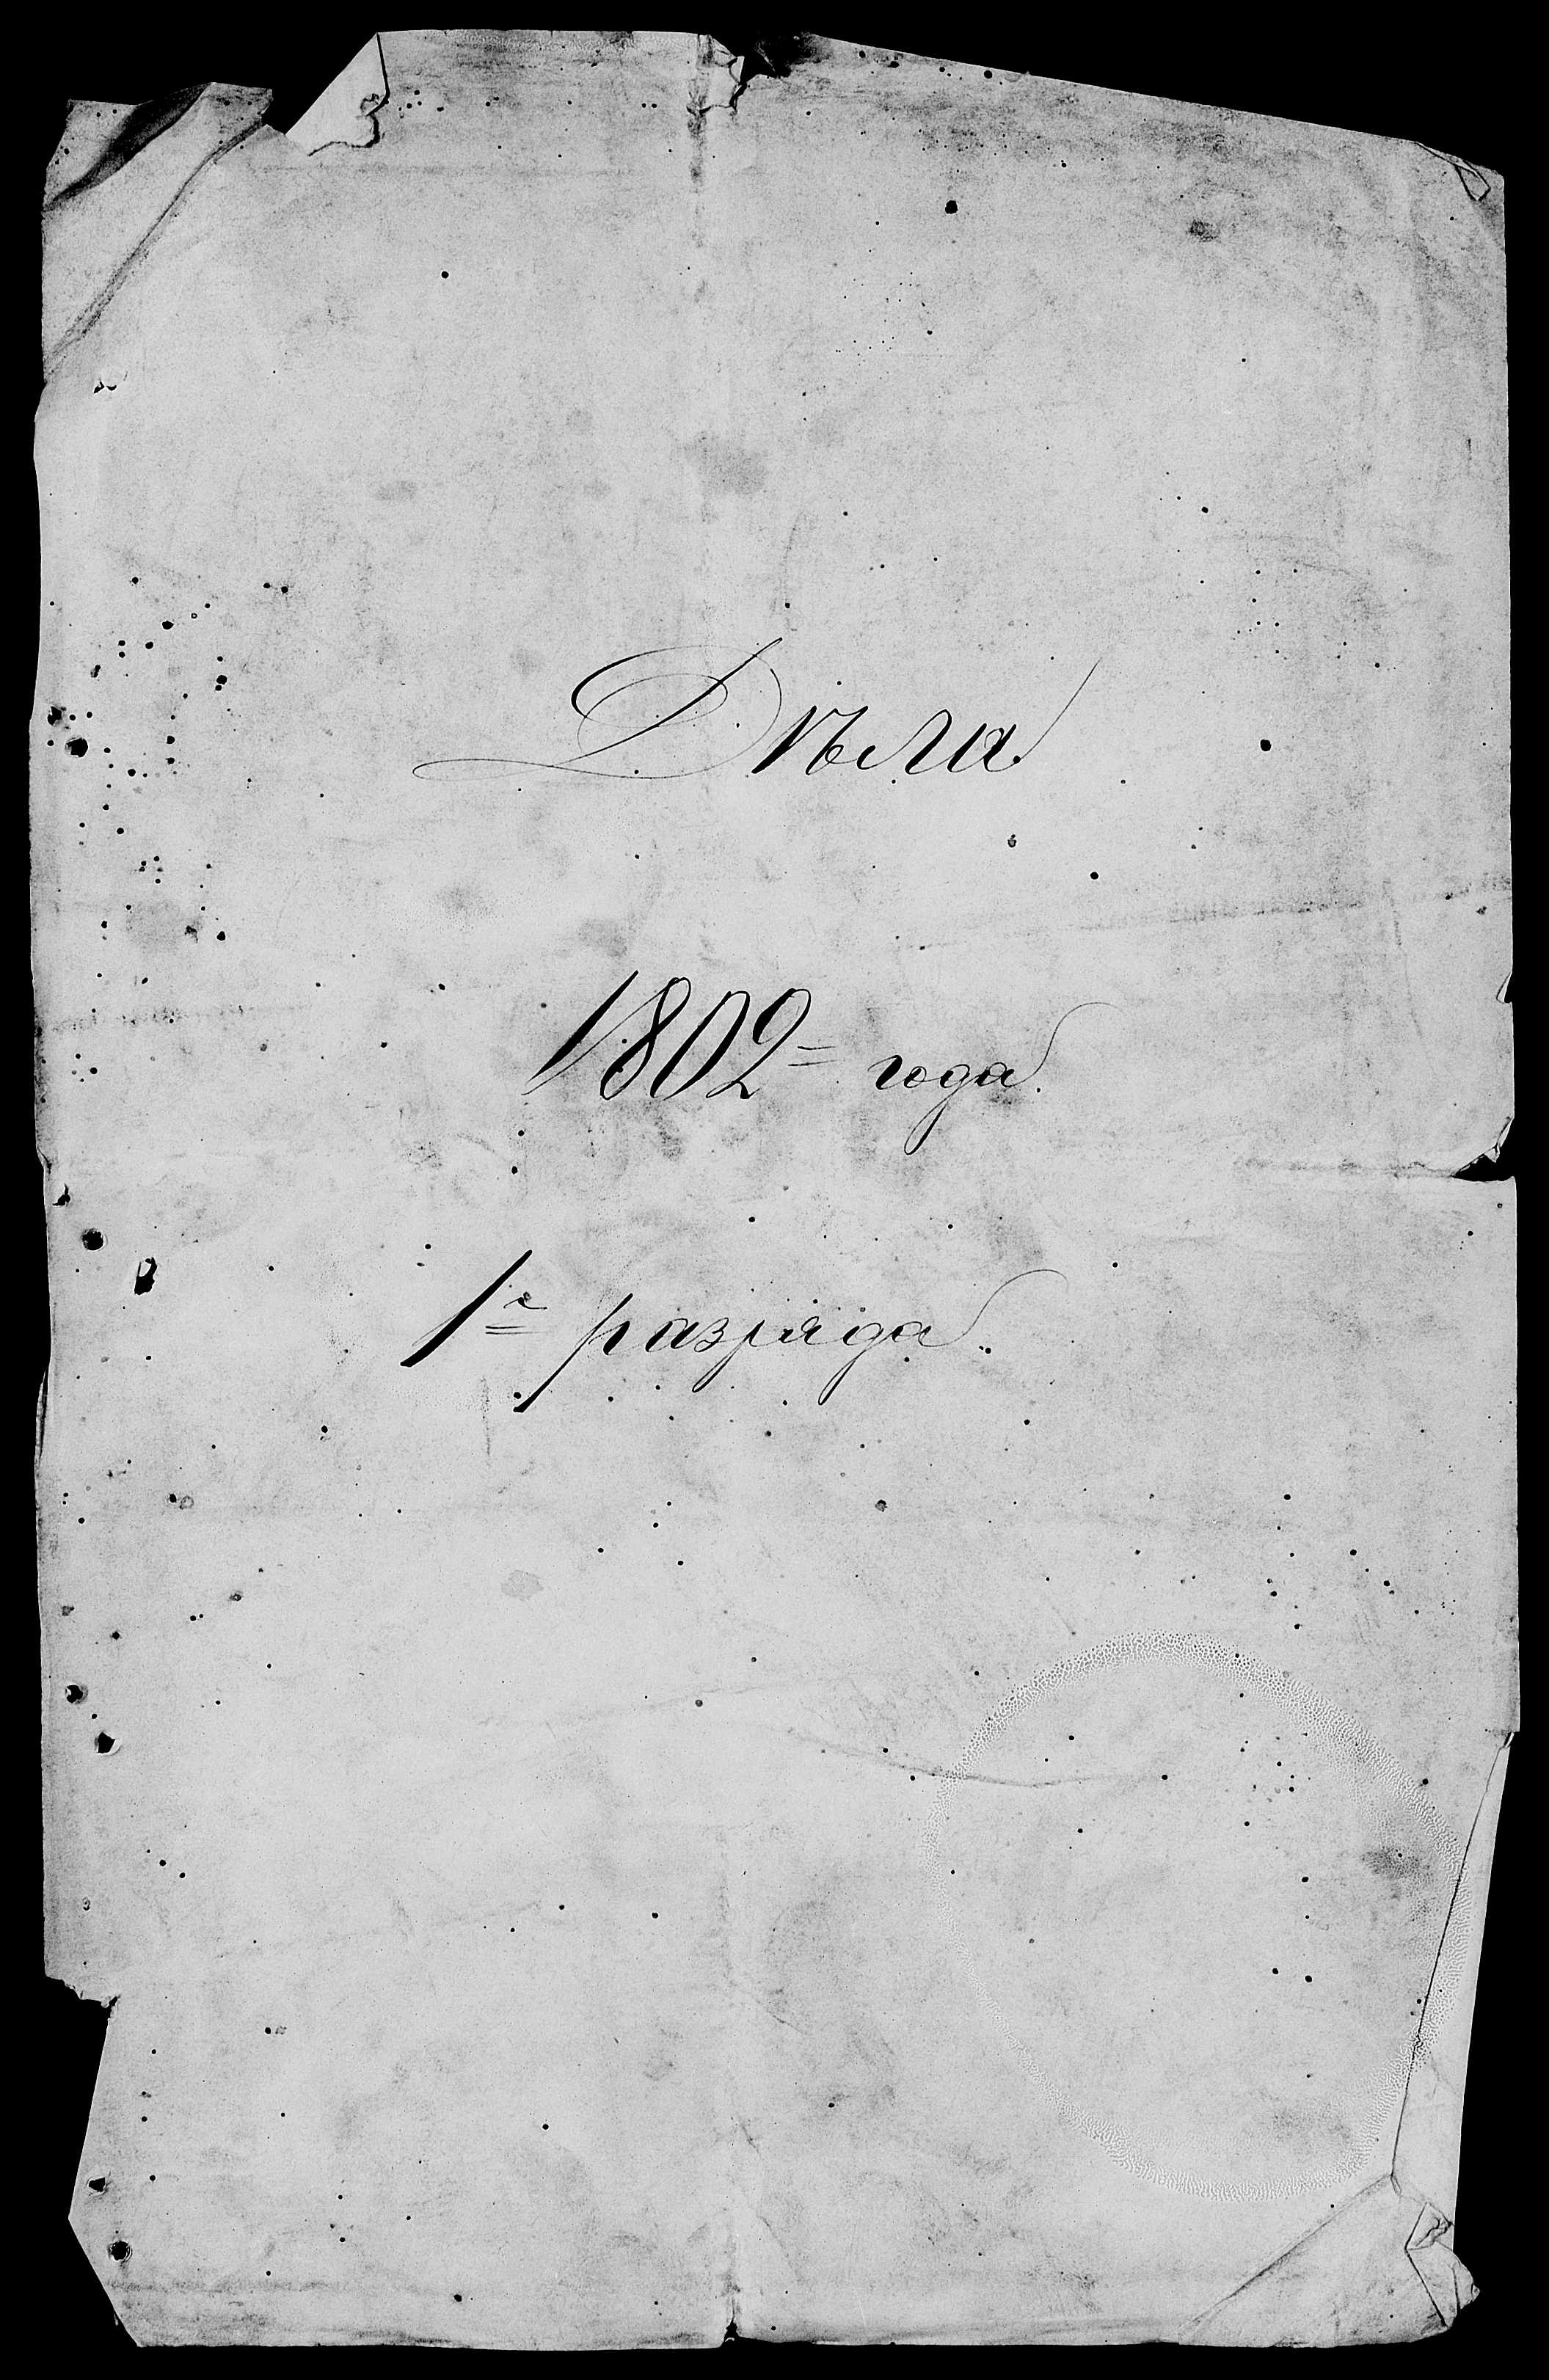 Дѣла
1802= года.
1г= разряда.